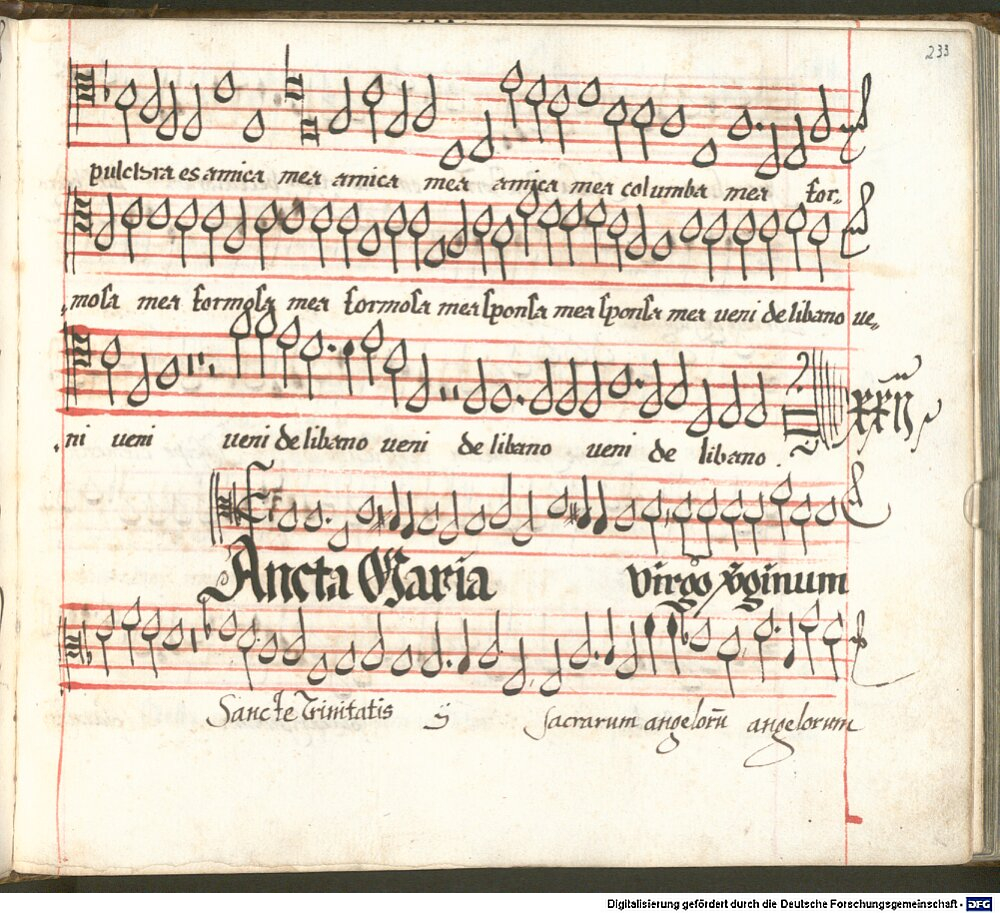 233
pulchra es amica mea amica mea amica mea columba mea for-
mosa mea formosa mea formosa mea sponsa mea sponsa mea veni de libano ve-
ni veni veni de libano veni de libano veni de libano.
SAncta Maria virgo v̄ginum
Sancte Trinitatis ij sacrarum angelorū angelorum
Digitalisierung gefördert durch die Deutsche Forschungsgemeinschaft - DFG